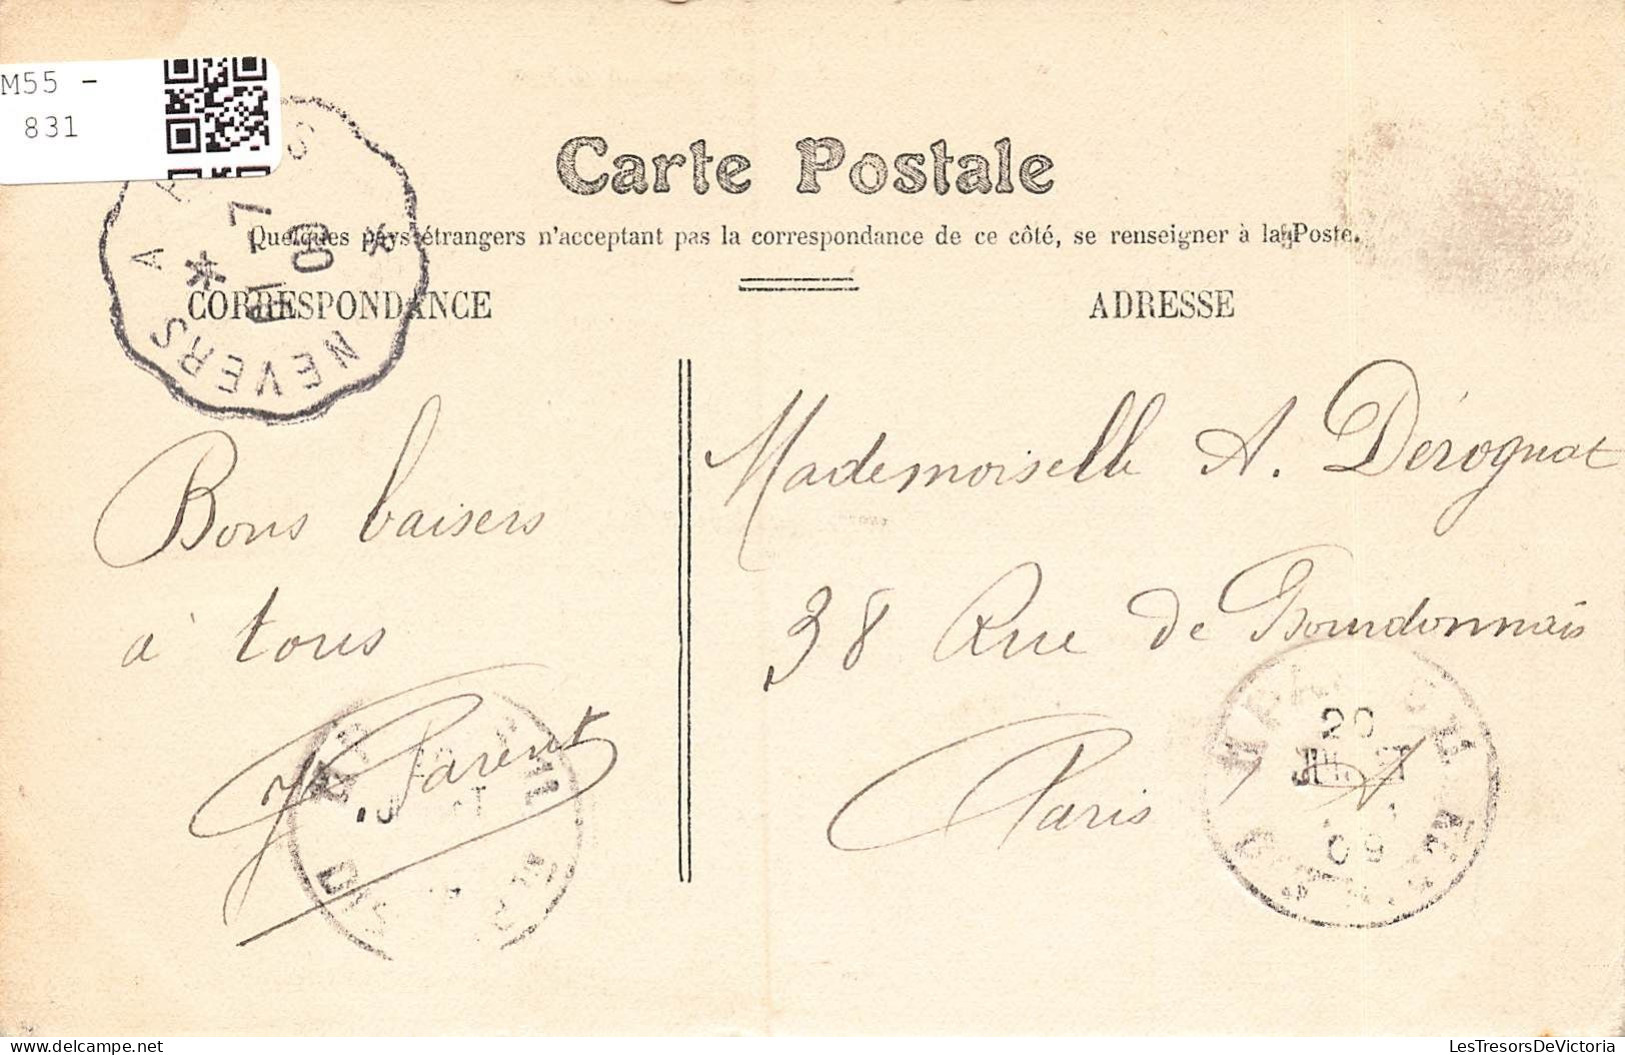 M55 -
831
Carte Postale
Quelques pays étrangers n'acceptant pas la correspondance de ce côté, se renseigner à la Poste.
CORRESPONDANCE
ADRESSE
NEVERS A
Bons baisers
à tous
Parent
Mademoiselle A. Dérognat
38 Rue de Bourdonnais
Paris
20
JUILLET
09
LesTresorsDeVictoria